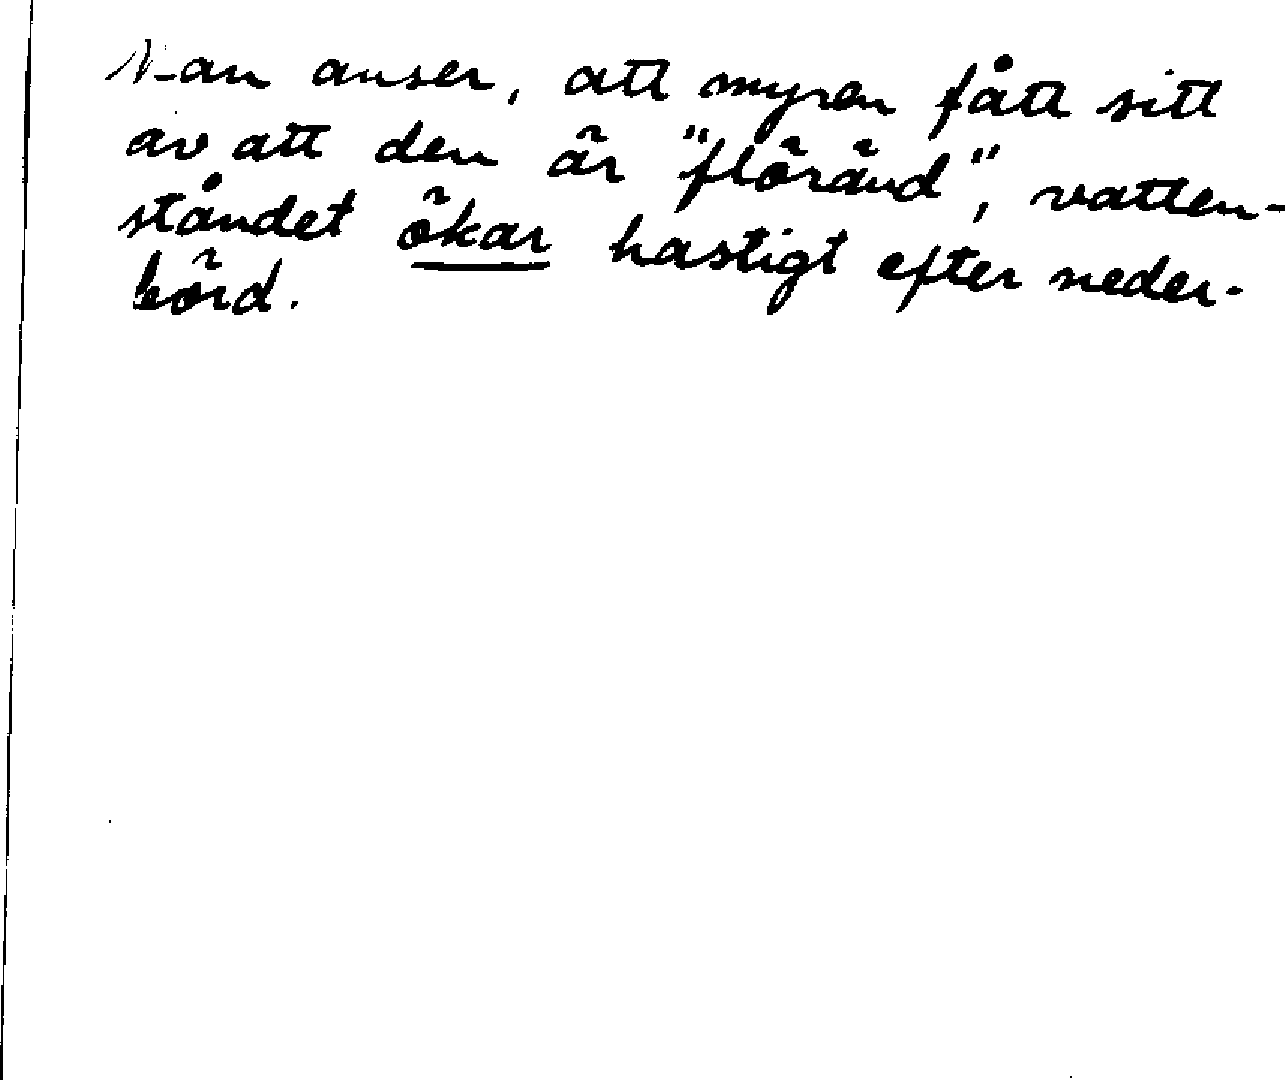 Man anser, att myren fått sitt
av att den är "floränd", vatten-
ståndet ökar hastigt efter neder-
börd.